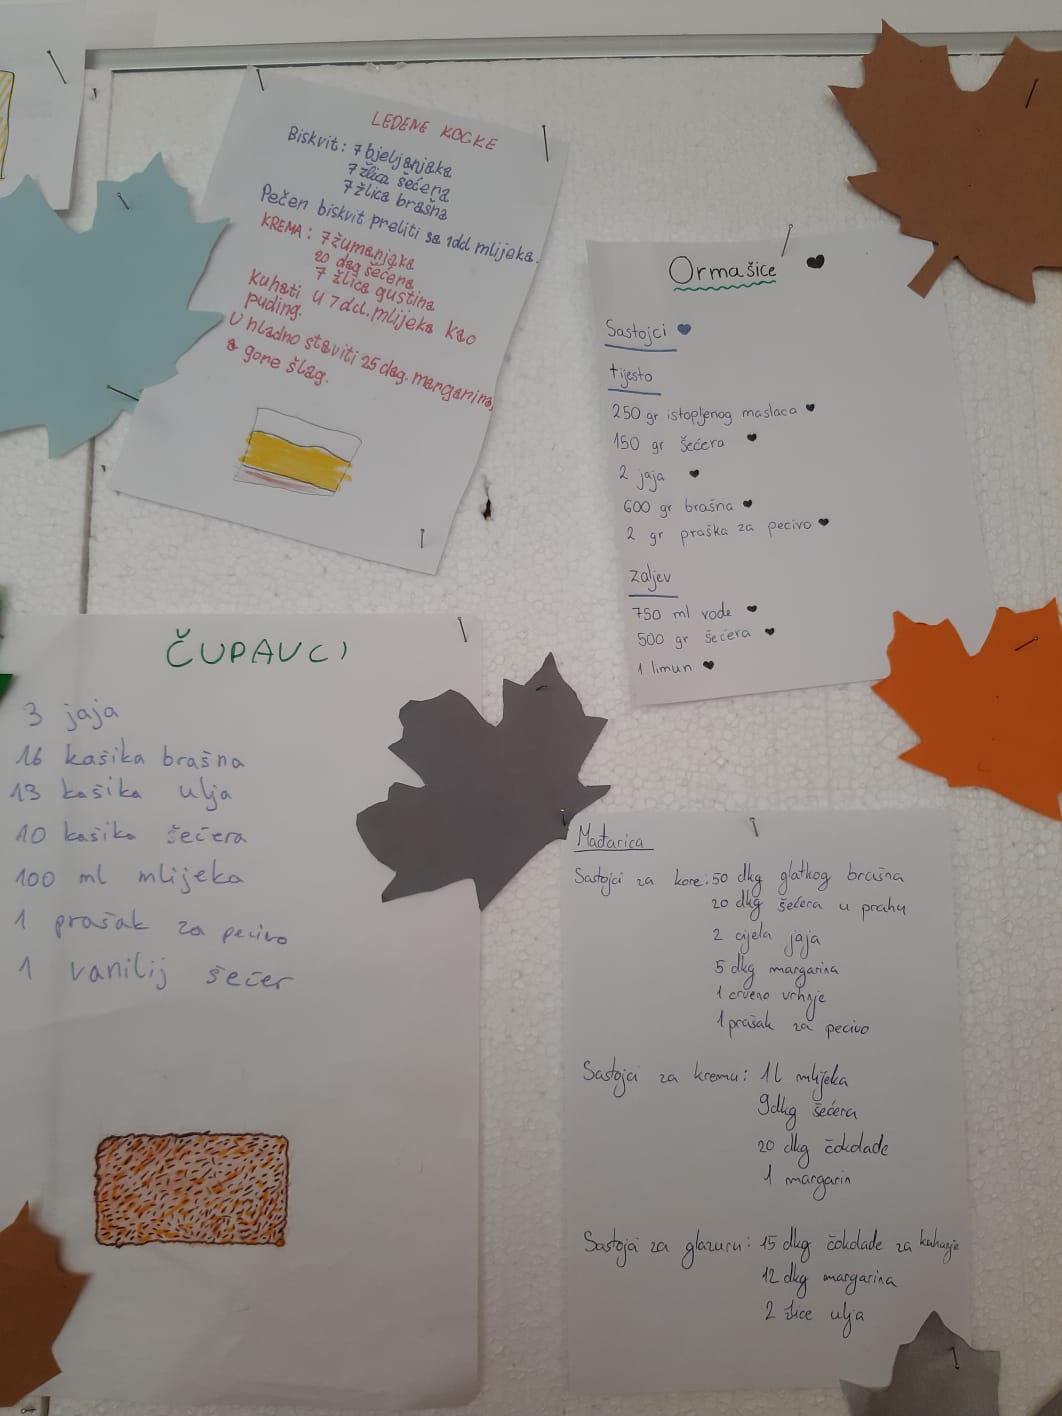 LEDENE KOCKE
Biskvit: 7 bjeljanjaka
7 žlica šećera
7 žlica brašna
Pečen biskvit preliti sa 1dcl mlijeka.
KREMA: 7 žumanjaka
20 dag šećera
7 žlica gustina
Kuhati u 7 dcl. mlijeka kao
puding.
U hladno staviti 25 dag. margarina,
a gore šlag.
Ormašice
Sastojci
tijesto
250 gr istopljenog maslaca
150 gr šećera
2 jaja
600 gr brašna
2 gr praška za pecivo
zaljev
750 ml vode
500 gr šećera
1 limun
ČUPAVCI
3 jaja
16 kašika brašna
13 kašika ulja
10 kašika šećera
100 ml mlijeka
1 prašak za pecivo
1 vanilij šečer
Mađarica
Sastojci za kore: 50 dkg glatkog brašna
20 dkg šećera u prahu
2 cijela jaja
5 dkg margarina
1 crveno vrhnje
1 prašak za pecivo
Sastojci za kremu: 1L mlijeka
9dkg šećera
20 dkg čokolade
1 margarin
Sastojci za glazuru: 15 dkg čokolade za kuhanje
12 dkg margarina
2 žlice ulja